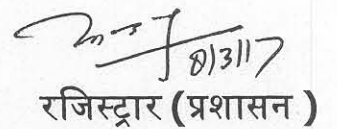 8/3/17
रजिस्ट्रार (प्रशासन )